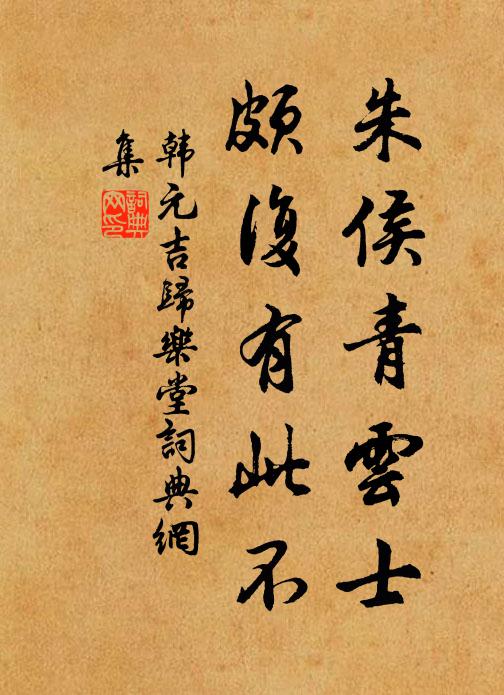 朱侯青雲士
頗復有此不
韩元吉歸樂堂詞典網
集
詞典网印